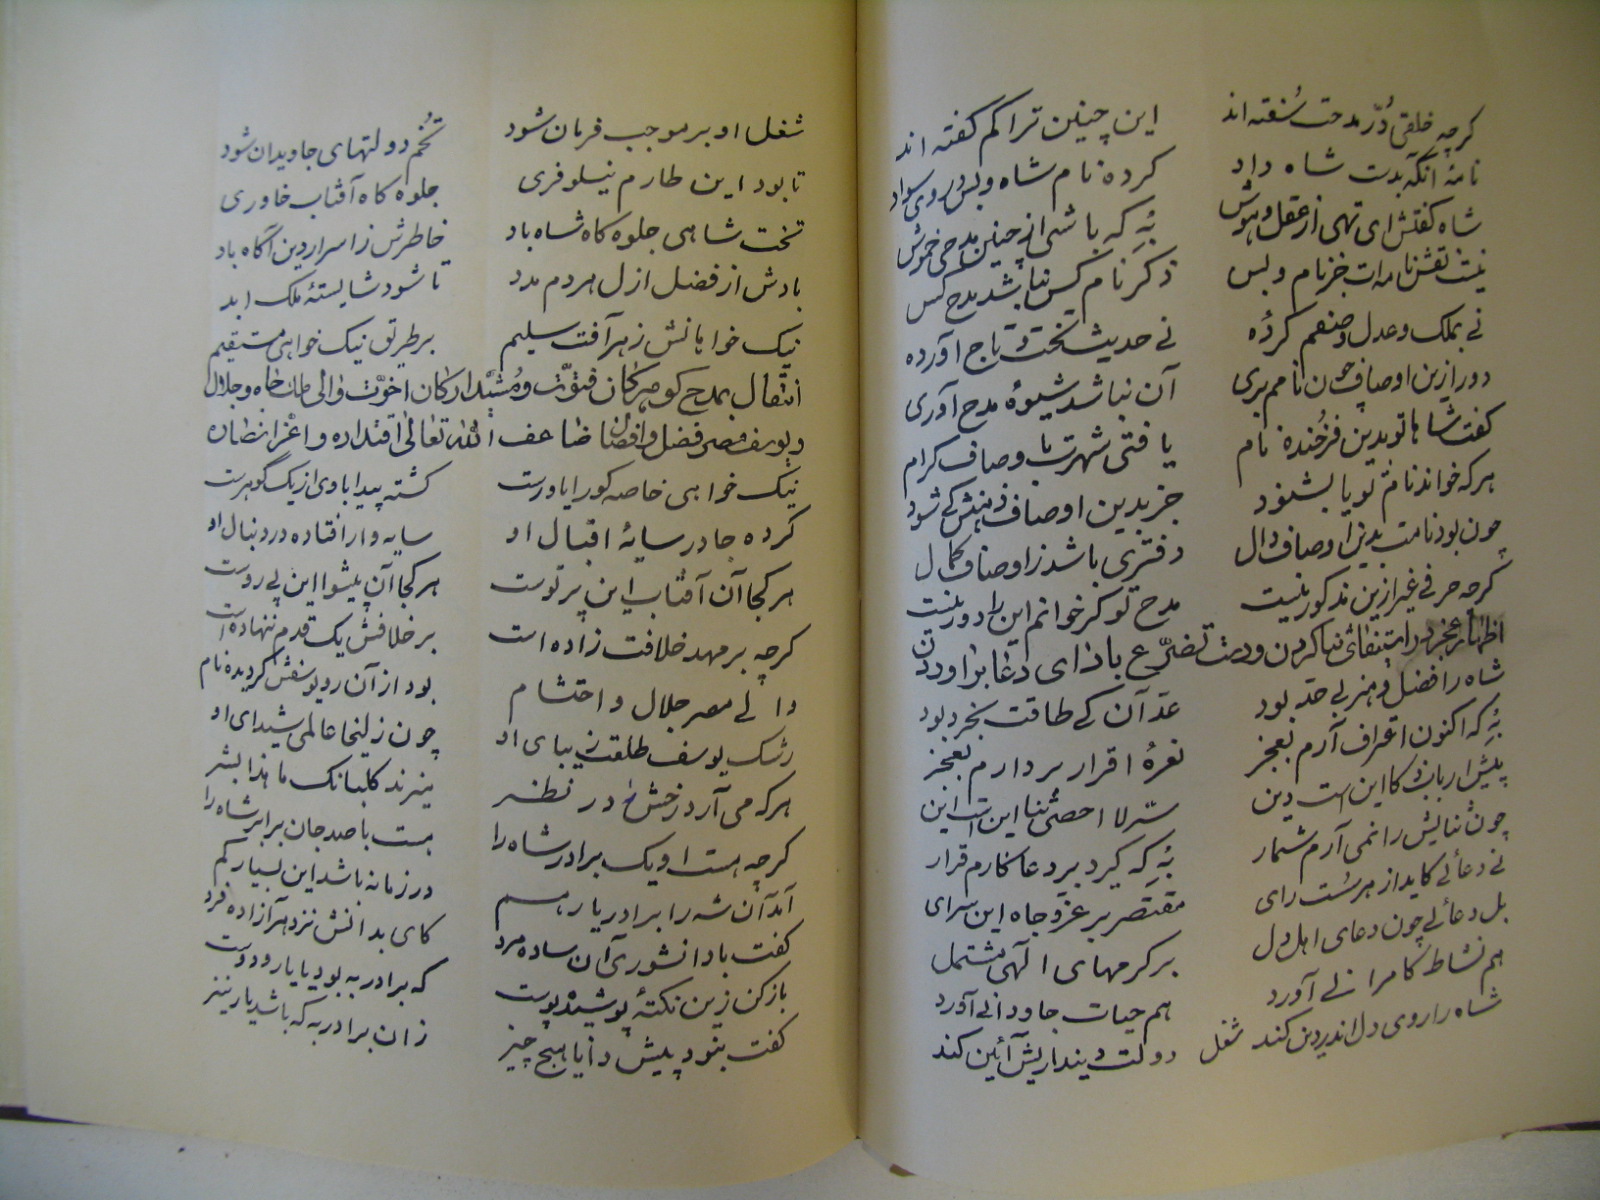 گرچه خلقی دُرّ مدحت سُفته اند این چنین ترا کم گفته اند
نامهٔ آنگه بدست شاه داد کرده نام شاه و بس در وی سواد
شاه گفتش ای تهی از عقل و هوش بُه که باشی از چنین مدحی خموش
نیست نقش نامه ات جز نام و بس ذکر نام کس نباشد مدح کس
نے بملک و عدل و صنعم کردهٔ نے حدیث تخت و تاج آوردهٔ
دور ازین اوصاف چون نامم بری آن نباشد شیوهٔ مدح آوری
گفت شاها تو بدین فرخنده نام یافتی شهرت باوصاف کرام
هر که خواند نام تو یا بشنود جز بدین اوصاف ذهنش کے شود
چون بود نامت بدین اوصاف دال دفتری باشد ز اوصاف کمال
گرچه حرفے غیر ازین مذکور نیست مدح تو گر خوانم این را دور نیست
اظهار عجز در استقصای ثنا کردن و دست تضرّع بادای دعا برآوردن
شاه را فضل و هنر بے حد بود عدّ آن کے طاقت بخرد بود
بُه که اکنون اعتراف آرم بعجز نعرهٔ اقرار بردارم بعجز
پیش ارباب ذکا این است دین سرّ لا احصی ثنا این است این
چون ثنایش را نمی آرم شمار بُه که گیرد بر دعا کارم قرار
نے دعائے کاید از هر سُست رای مقتصر بر عزّ و جاه این سرای
بل دعائے چون دعای اهل دل بر کرمهای الٰهی مشتمل
هم نشاط کامرانے آورد هم حیات جاودانے آورد
شاه را روی دل اندر دین کند شغل دولت دینداریش آئین کند
شغل او بر موجب فرمان شود تُخم دولتهای جاویدان شود
تا بود این طارم نیلوفری جلوه گاه آفتاب خاوری
تخت شاهی جلوه گاه شاه باد خاطرش ز اسرار دین آگاه باد
بادش از فضل ازل هر دم مدد تا شود شایستهٔ ملک ابد
نیک خواهانش ز هر آفت سلیم بر طریق نیک خواهی مستقیم
انتقال بمدح گوهر کان فتوّت و مُشیّد ارکان اخوّت والی ملک جاه و جلال
و یوسف مصر فضل و افضال ضاعف الله تعالی اقتداره و اعّز انصاره
نیک خواهی خاصه کو را یاورست گشته پیدا با وی از یک گوهرست
کرده جا در سایهٔ اقبال او سایه وار افتاده در دنبال او
هر کجا آن آفتاب این پرتوست هر کجا آن پیشوا این پے روست
گرچه بر مهد خلافت زاده است بر خلافش یک قدم ننهاده است
والے مصر جلال و احتشام بود از آن رو یوسفش گردیده نام
رشک یوسف طلعت زیبای او چون زلیخا عالمی شیدای او
هر که می آرد رخش را در نظر میزند گلبانگ ما هذا بشر
گرچه هست او یک برادر شاه را هست با صد جان برابر شاه را
آمد آن شه را برادر یار هم در زمانه باشد این بسیار کم
گفت با دانشوری آن ساده مرد کای بدانش نزد هر آزاده فرد
باز کن زین نکتهٔ پوشیده پوست که برادر به بود یا یار و دوست
گفت بنود پیش دانا هیچ چیز زان برادر به که باشد یار نیز